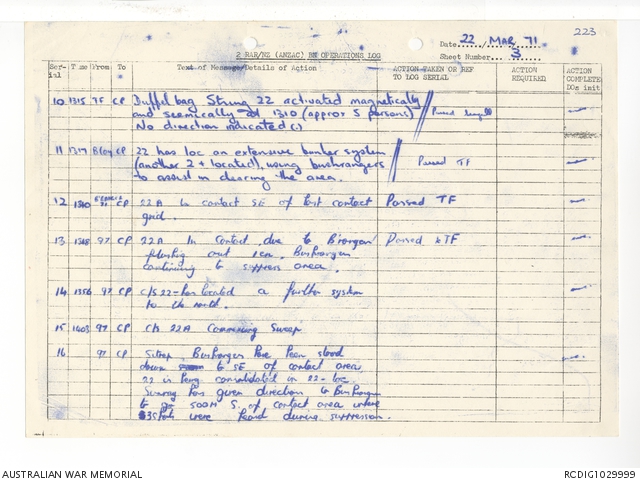 223
Date 22 / MAR / 71
2 RAR/NZ (ANZAC) BN OPERATIONS LOG
Sheet Number 3
Ser-ial Time From To Text of Message/Details of Action ACTION TAKEN OR REF TO LOG SERIAL ACTION REQUIRED ACTION COMPLETE DOs init
10 1315 TF CP Duffel bag String 22 activated magnetically
and seismically at 1310 (approx 5 persons) Passed
No direction indicated (.)
11 1317 CP 22 has loc an extensive bunker system
(another 2 + located), using bushrangers Passed TF
to assist in clearing the area.
12 CP 22A in contact SE of last contact Passed TF
grid.
13 97 CP 22A In Contact due to Passed to TF
flushing out Bushrangers
continuing to suppress area.
14 1356 97 CP c/s 22 has located a further system
to the north.
15 1403 97 CP c/s 22A Commencing Sweep
16 97 CP Sitrep, Bushrangers have been stood
down to SE of contact area
22 is being consolidated in 22 loc.
has given direction to Bushrangers
to go 500M S. of contact area where
were heard during suppression.
AUSTRALIAN WAR MEMORIAL
RCDIG1029999